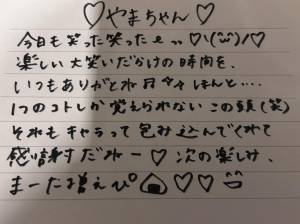 ♡やまちゃん♡
今日も笑った笑ったぁ〜♡\(^^)/♡
楽しい大笑いだかけの時間を、
いつもありがとネ♬ ほんと....
1つのコトしか覚えられない この頭(笑)
それもキャラって包み込んでくれて
感謝だネー♡ 次の楽しみ、
まーた増えぴ🍙♡♡